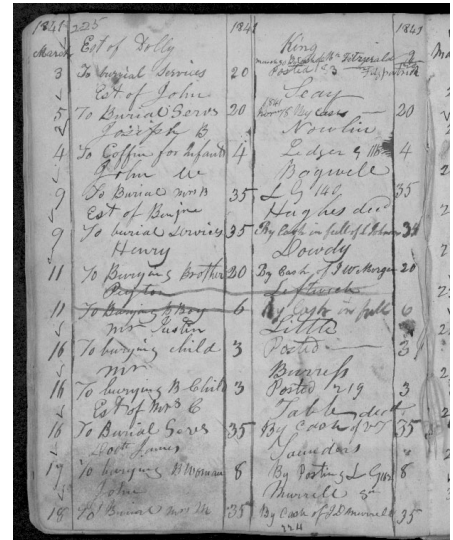 1841 225 1841 1841
March Est of Dolly King
3 To burial Services 20 Posted
Est of John Seay
5 To Burial Servs 20 By Cash 20
Joseph B Nowlin
4 To Coffin for Infant 4 Ledger 4
John W Bagwell
9 To Burial Mrs B 35 L G 140 35
Est of Benjn Hughes decd
9 To burial Services 35 By Cash in full of 35
Henry Dowdy
11 To Burying Brother 20 By Cash of J W Morgan 20
Peyton Leftwich
11 To Burying B Boy 6 By Cash in full 6
Mrs Justin Little
16 To burying child 3 Posted 3
Mrs Burress
16 To burying B Child 3 Posted 219 3
Est of Mrs C Table decd
16 To Burial Servs 35 By Cash of 35
Doct James Saunders
17 To burying B Woman 8 By Posting L G 8
John Murrell Sr
18 To Burial Mrs M 35 By Cash of J D Murrell 35
224